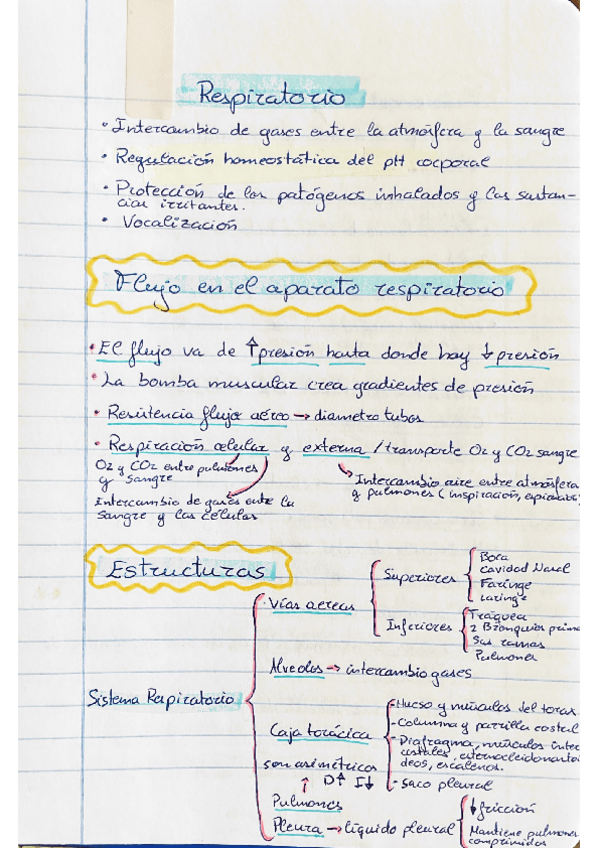 Respiratorio
• Intercambio de gases entre la atmósfera y la sangre
• Regulación homeostática del pH corporal
• Protección de los patógenos inhalados y las sustan-
cias irritantes.
• Vocalización
Flujo en el aparato respiratorio
• El flujo va de ↑presión hasta donde hay ↓presión
• La bomba muscular crea gradientes de presión
• Resistencia flujo aéreo → diametro tubos
• Respiración celular y externa / transporte O2 y CO2 sangre
O2 y CO2 entre pulmones
y sangre
Intercambio aire entre atmósfera
y pulmones (inspiración,
Intercambio de gases entre la
sangre y las células
Estructuras
Sistema Respiratorio
• Vías aereas
Superiores
Boca
Cavidad Nasal
Faringe
Laringe
Inferiores
Tráquea
2 Bronquios prima
Sus ramas
Pulmones
Alveolos → intercambio gases
Caja torácica
- Hueso y músculos del torax
- Columna y parrilla costal
- Diafragma, músculos inter
costales, esternocleidomastoi
deos, escalenos.
- Saco pleural
son asimétricos
↑ D↑ I↓
Pulmones
Pleura → líquido pleural
↓ fricción
Mantiene pulmones
comprimidos